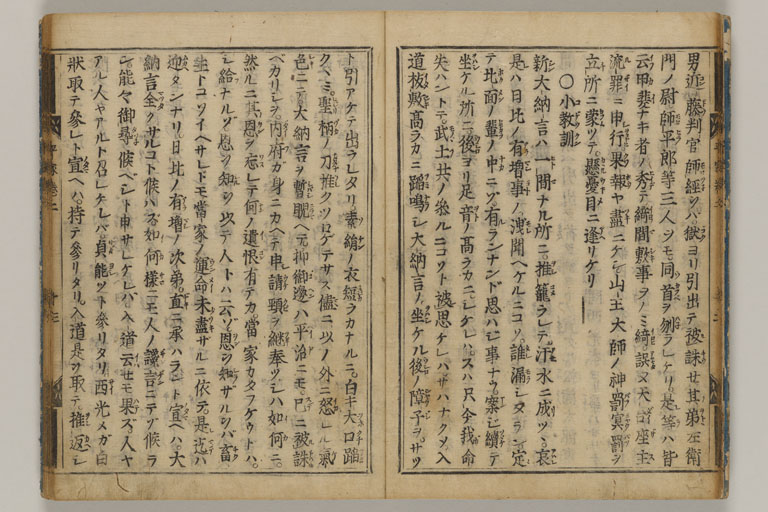 男近藤判官師經ヲハ獄ヨリ引出テ被誅セ其弟左衛
門ノ尉師平郎等三人ヲモ同首ヲ刎ラレケリ是等ハ皆
云甲斐ナキ者ノ秀テ綺間敷事ヲノミ綺誤ヌ天台座主
流罪ニ申行果報ヤ盡ニケン山王大師ノ神罰冥罰ヲ
立所ニ蒙ツテ懸憂目ニ逢リケリ
○小教訓
新大納言ハ一間ナル所ニ推籠ラレテ汗水ニ成ツヽ哀
是ハ日比ノ有増事ノ洩聞ヘケルニコソ誰漏シタラン定
テ北面ノ輩ノ中ニゾ有ランナンド思ハジ事ナウ案ジ續テ
坐ケル所ニ後ヨリ足音ノ高ラカニシケレハスハ只今我命
失ハントテ武士共ノ參ルニコソト被思ケレハサハナクメ入
道板敷高ラカニ蹈鳴シ大納言ノ坐ケル後ノ障子ヲサツ
ト引アケテ出ラレタリ素絹ノ衣短ラカナルニ白キ大口蹈
クヽミ聖柄ノ刀推クツロケテサス儘ニ以ノ外ニ怒レル氣
色ニテ大納言ヲ暫睨ヘテ抑御邊ハ平治ニモ已ニ被誅
ベカリシヲ内府ガ身ニカヘテ申請頸ヲ継奉ツシハ如何ニ
然ルニ其恩ヲ忘レテ何ノ遺恨有テカ當家カタフケウトハ
シ給ナルゾ恩ヲ知ヲ以テ人トハ云ゾ恩ヲ知サルヲバ畜
生トコソイヘサレドモ當家ノ運命未盡サルニ依テ是迄ハ
迎タンナリ日比ノ有増ノ次弟直ニ承ハラント宣ヘハ大
納言全クサルコト候ハズ如何樣ニモ人ノ讒言ニテゾ候ラ
ン能々御尋候ベシト申サレケレバ入道云セモ果ズ人ヤ
アル人ヤアルト召レケレバ貞能ツト參リタリ西光メガ白
狀取テ參レト宣ヘハ持テ參リタリ入道是ヲ取テ推返シ